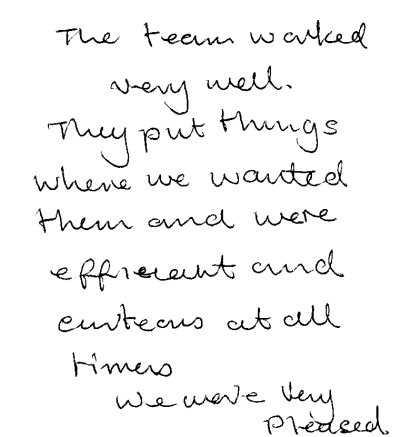 The team worked
very well.
They put things
where we wanted
them and were
efficient and
curteous at all
times
We were very
pleased